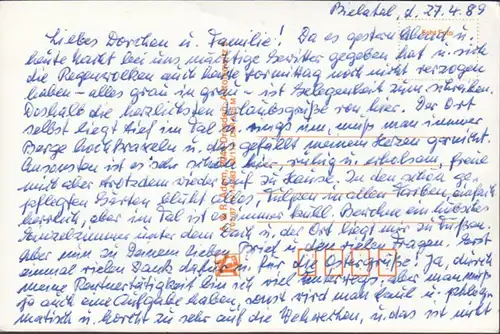 Bielatal, d. 27.4.89
Liebes Dorchen u. Familie! Da es gestern Abend u.
heute Nacht bei uns mächtige Gewitter gegeben hat u. sich
die Regenwolken auch heute Vormittag noch nicht verzogen
haben – alles grau in grau – ist Gelegenheit zum schreiben.
Deshalb die herzlichsten Urlaubsgrüße von hier. Der Ort
selbst liegt tief im Tal u. rings um, muß man immer
Berge hochkraxeln u. das gefällt meinem Herzen garnicht.
Ansonsten ist es sehr schön hier, ruhig u. erholsam, freue
mich aber trotzdem wieder auf zu Hause. In den schön ge-
pflegten Gärten blüht alles, Tulpen in allen Farben, einfach
herrlich, aber im Tal ist es immer kühl. Wir haben ein hübsches
unter dem Dach u. der Ort liegt uns zu Füßen.
Aber nun zu Deinem lieben Brief u. den vielen Fragen. Erst
einmal vielen Dank dafür u. für die Ostergrüße! Ja, durch
meine Rentnertätigkeit bin ich viel unterwegs, aber man muß
ja auch eine Aufgabe haben, sonst wird man faul u. phleg-
matisch u. horcht zu sehr auf die Wehwehchen, u. das ist nicht